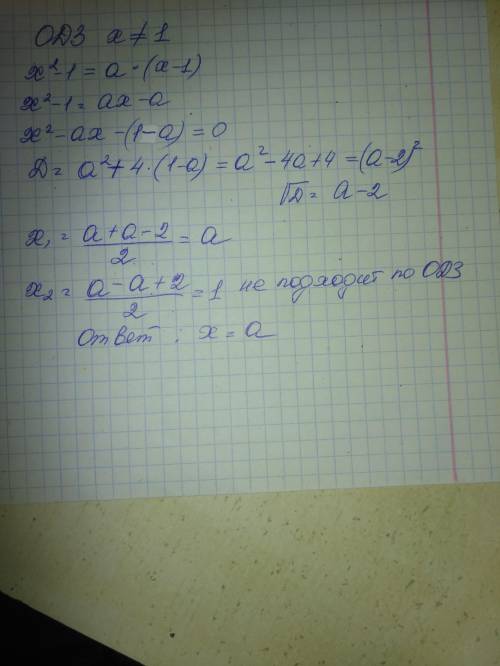 ОДЗ x ≠ 1
x² - 1 = a · (x - 1)
x² - 1 = ax - a
x² - ax - (1 - a) = 0
D = a² + 4 · (1 - a) = a² - 4a + 4 = (a - 2)²
√D = a - 2
x₁ = (a + a - 2)/2 = a
x₂ = (a - a + 2)/2 = 1 не подходит по ОДЗ
Ответ: x = a